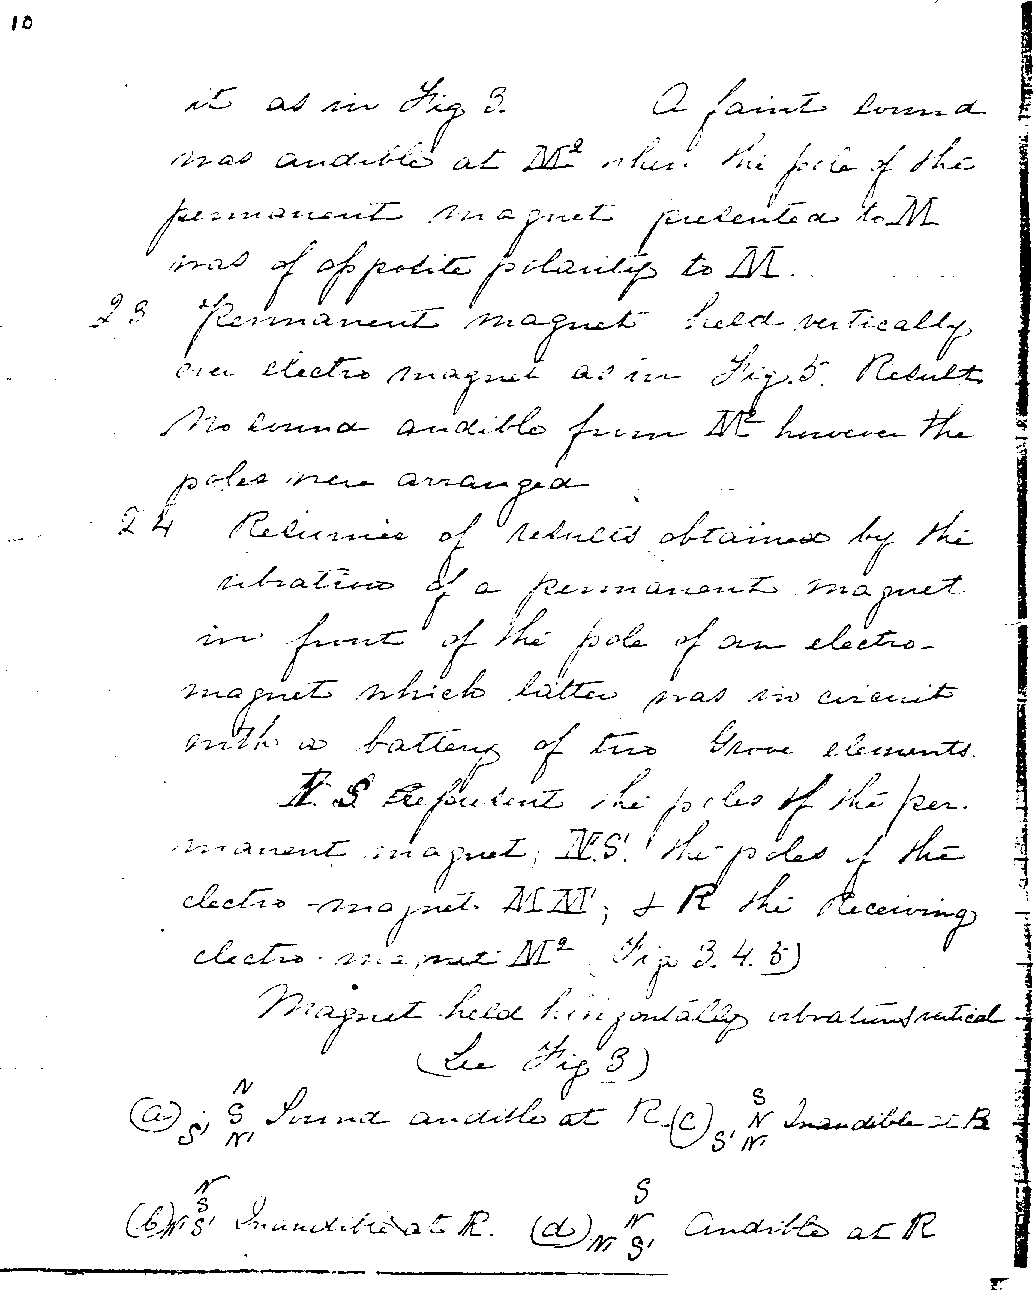 10
it as in Fig 3. A faint sound
was audible at M² when the pole of the
permanent magnet presented to M
was of opposite polarity to M.
23 Permanent magnet held vertically
over electro magnet as in Fig. 5. Result
No sound audible from M² however the
poles were arranged
24 Resumée of results obtained by the
vibration of a permanent magnet
in front of the pole of an electro-
magnet which latter was in circuit
with a battery of two Grove elements.
N. S. Represent the poles of the per-
manent magnet; N'.S'. the poles of the
electro-magnet M M'; & R the Receiving
electro-magnet M² Fig 3. 4. 5)
Magnet held horizontally vibrations vertical
(See Fig 3)
(a) S' N S N' Sound audible at R. (c) S' S N N' Inaudible at R
(b) N' N S S' Inaudible at R. (d) N' S N S' Audible at R